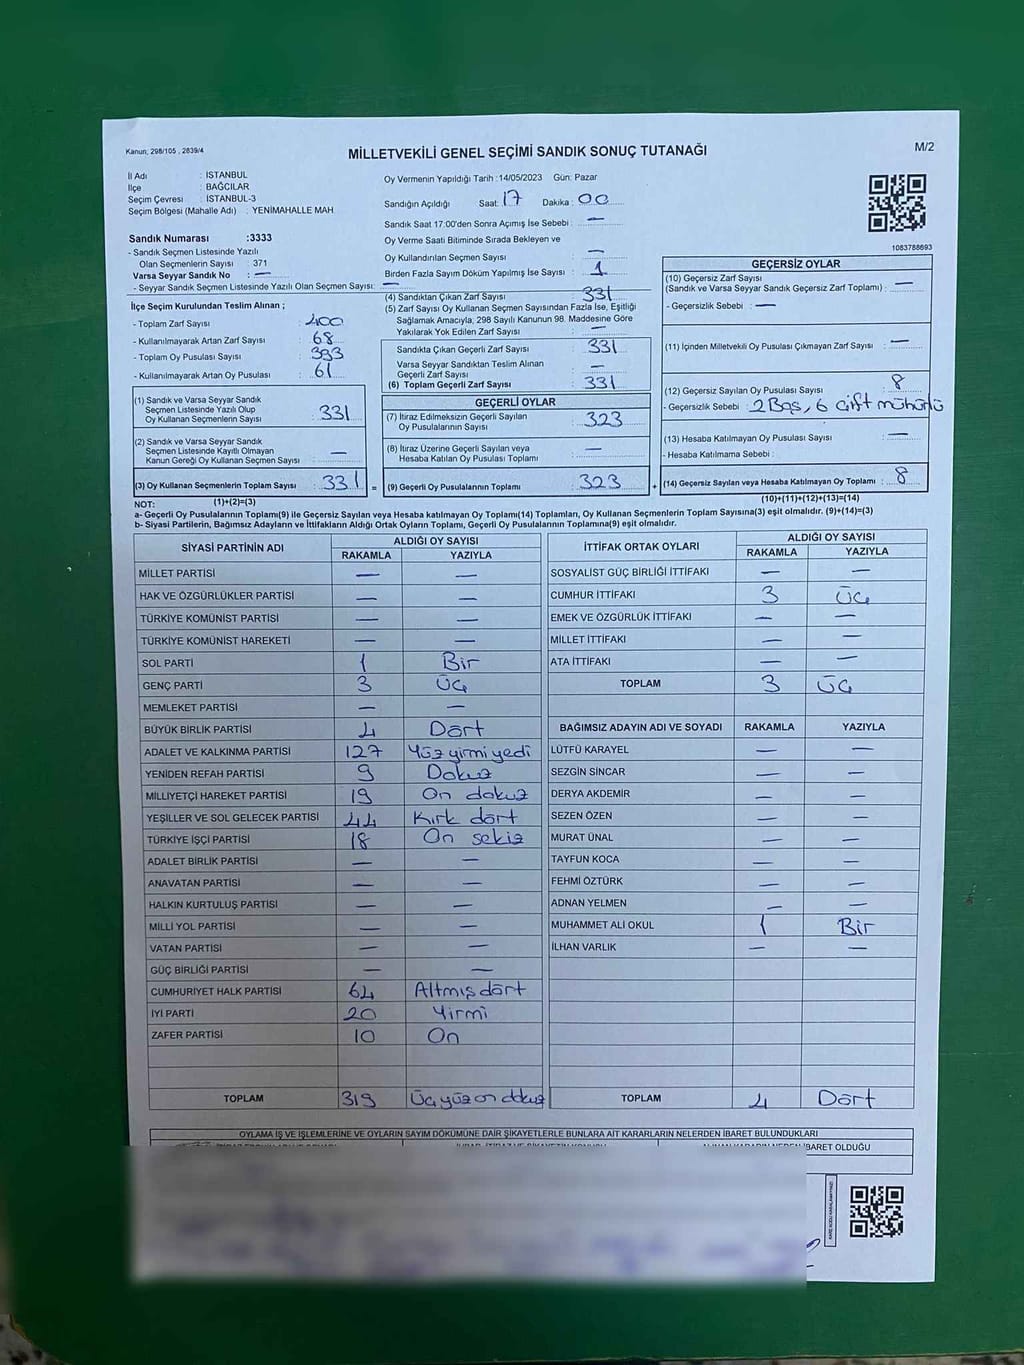 Kanun; 298/105 , 2839/4
MİLLETVEKİLİ GENEL SEÇİMİ SANDIK SONUÇ TUTANAĞI
M/2
İl Adı : İSTANBUL
İlçe : BAĞCILAR
Seçim Çevresi : İSTANBUL-3
Seçim Bölgesi (Mahalle Adı) : YENİMAHALLE MAH
Sandık Numarası :3333
- Sandık Seçmen Listesinde Yazılı
Olan Seçmenlerin Sayısı : 371
Varsa Seyyar Sandık No : —
- Seyyar Sandık Seçmen Listesinde Yazılı Olan Seçmen Sayısı: —
İlçe Seçim Kurulundan Teslim Alınan ;
- Toplam Zarf Sayısı : 400
- Kullanılmayarak Artan Zarf Sayısı : 68
- Toplam Oy Pusulası Sayısı : 393
- Kullanılmayarak Artan Oy Pusulası : 61
(1) Sandık ve Varsa Seyyar Sandık
Seçmen Listesinde Yazılı Olup
Oy Kullanan Seçmenlerin Sayısı : 331
(2) Sandık ve Varsa Seyyar Sandık
Seçmen Listesinde Kayıtlı Olmayan
Kanun Gereği Oy Kullanan Seçmen Sayısı : —
(3) Oy Kullanan Seçmenlerin Toplam Sayısı : 331 =
Oy Vermenin Yapıldığı Tarih :14/05/2023 Gün: Pazar
Sandığın Açıldığı Saat: 17 Dakika : 00
Sandık Saat 17:00'den Sonra Açılmış İse Sebebi : —
Oy Verme Saati Bitiminde Sırada Bekleyen ve
Oy Kullandırılan Seçmen Sayısı : —
Birden Fazla Sayım Döküm Yapılmış İse Sayısı : 1
(4) Sandıktan Çıkan Zarf Sayısı : 331
(5) Zarf Sayısı Oy Kullanan Seçmen Sayısından Fazla İse, Eşitliği
Sağlamak Amacıyla; 298 Sayılı Kanunun 98. Maddesine Göre
Yakılarak Yok Edilen Zarf Sayısı : —
Sandıkta Çıkan Geçerli Zarf Sayısı : 331
Varsa Seyyar Sandıktan Teslim Alınan
Geçerli Zarf Sayısı : —
(6) Toplam Geçerli Zarf Sayısı : 331
GEÇERLİ OYLAR
(7) İtiraz Edilmeksizin Geçerli Sayılan
Oy Pusulalarının Sayısı : 323
(8) İtiraz Üzerine Geçerli Sayılan veya
Hesaba Katılan Oy Pusulası Toplamı : —
(9) Geçerli Oy Pusulalarının Toplamı : 323 +
1083788693
GEÇERSİZ OYLAR
(10) Geçersiz Zarf Sayısı
(Sandık ve Varsa Seyyar Sandık Geçersiz Zarf Toplamı) : —
- Geçersizlik Sebebi : —
(11) İçinden Milletvekili Oy Pusulası Çıkmayan Zarf Sayısı : —
(12) Geçersiz Sayılan Oy Pusulası Sayısı : 8
- Geçersizlik Sebebi : 2 Boş, 6 çift mühürlü
(13) Hesaba Katılmayan Oy Pusulası Sayısı : —
- Hesaba Katılmama Sebebi :
(14) Geçersiz Sayılan veya Hesaba Katılmayan Oy Toplamı : 8
NOT: (1)+(2)=(3) (10)+(11)+(12)+(13)=(14)
a- Geçerli Oy Pusulalarının Toplamı(9) ile Geçersiz Sayılan veya Hesaba katılmayan Oy Toplamı(14) Toplamları, Oy Kullanan Seçmenlerin Toplam Sayısına(3) eşit olmalıdır. (9)+(14)=(3)
b- Siyasi Partilerin, Bağımsız Adayların ve İttifakların Aldığı Ortak Oyların Toplamı, Geçerli Oy Pusulalarının Toplamına(9) eşit olmalıdır.
SİYASİ PARTİNİN ADI ALDIĞI OY SAYISI
RAKAMLA YAZIYLA
MİLLET PARTİSİ — —
HAK VE ÖZGÜRLÜKLER PARTİSİ — —
TÜRKİYE KOMÜNİST PARTİSİ — —
TÜRKİYE KOMÜNİST HAREKETİ — —
SOL PARTİ 1 Bir
GENÇ PARTİ 3 Üç
MEMLEKET PARTİSİ — —
BÜYÜK BİRLİK PARTİSİ 4 Dört
ADALET VE KALKINMA PARTİSİ 127 Yüz yirmi yedi
YENİDEN REFAH PARTİSİ 9 Dokuz
MİLLİYETÇİ HAREKET PARTİSİ 19 On dokuz
YEŞİLLER VE SOL GELECEK PARTİSİ 44 Kırk dört
TÜRKİYE İŞÇİ PARTİSİ 18 On sekiz
ADALET BİRLİK PARTİSİ — —
ANAVATAN PARTİSİ — —
HALKIN KURTULUŞ PARTİSİ — —
MİLLİ YOL PARTİSİ — —
VATAN PARTİSİ — —
GÜÇ BİRLİĞİ PARTİSİ — —
CUMHURİYET HALK PARTİSİ 64 Altmış dört
İYİ PARTİ 20 Yirmi
ZAFER PARTİSİ 10 On
TOPLAM 319 Üç yüz on dokuz
İTTİFAK ORTAK OYLARI ALDIĞI OY SAYISI
RAKAMLA YAZIYLA
SOSYALİST GÜÇ BİRLİĞİ İTTİFAKI — —
CUMHUR İTTİFAKI 3 Üç
EMEK VE ÖZGÜRLÜK İTTİFAKI — —
MİLLET İTTİFAKI — —
ATA İTTİFAKI — —
TOPLAM 3 Üç
BAĞIMSIZ ADAYIN ADI VE SOYADI RAKAMLA YAZIYLA
LÜTFÜ KARAYEL — —
SEZGİN SİNCAR — —
DERYA AKDEMİR — —
SEZEN ÖZEN — —
MURAT ÜNAL — —
TAYFUN KOCA — —
FEHMİ ÖZTÜRK — —
ADNAN YELMEN — —
MUHAMMET ALİ OKUL 1 Bir
İLHAN VARLIK — —
TOPLAM 4 Dört
OYLAMA İŞ VE İŞLEMLERİNE VE OYLARIN SAYIM DÖKÜMÜNE DAİR ŞİKAYETLERLE BUNLARA AİT KARARLARIN NELERDEN İBARET BULUNDUKLARI
İBARET OLDUĞU